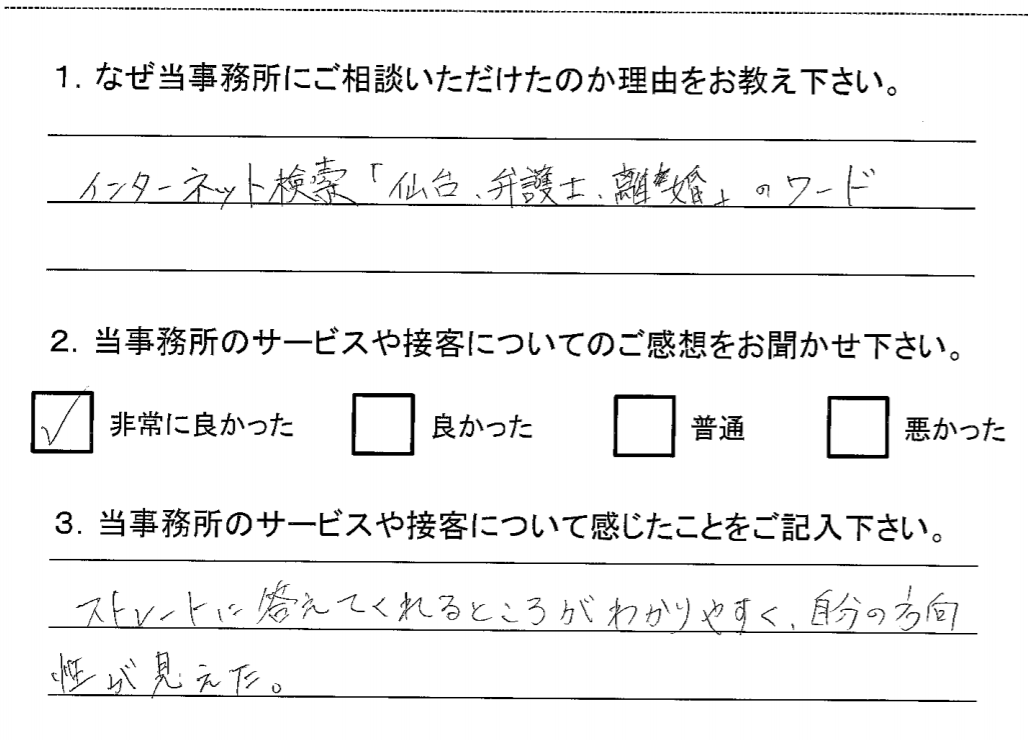 1. なぜ当事務所にご相談いただけたのか理由をお教え下さい。
インターネット検索「仙台、弁護士、離婚」のワード
2. 当事務所のサービスや接客についてのご感想をお聞かせ下さい。
✓ 非常に良かった □ 良かった □ 普通 □ 悪かった
3. 当事務所のサービスや接客について感じたことをご記入下さい。
ストレートに答えてくれるところがわかりやすく、自分の方向
性が見えた。